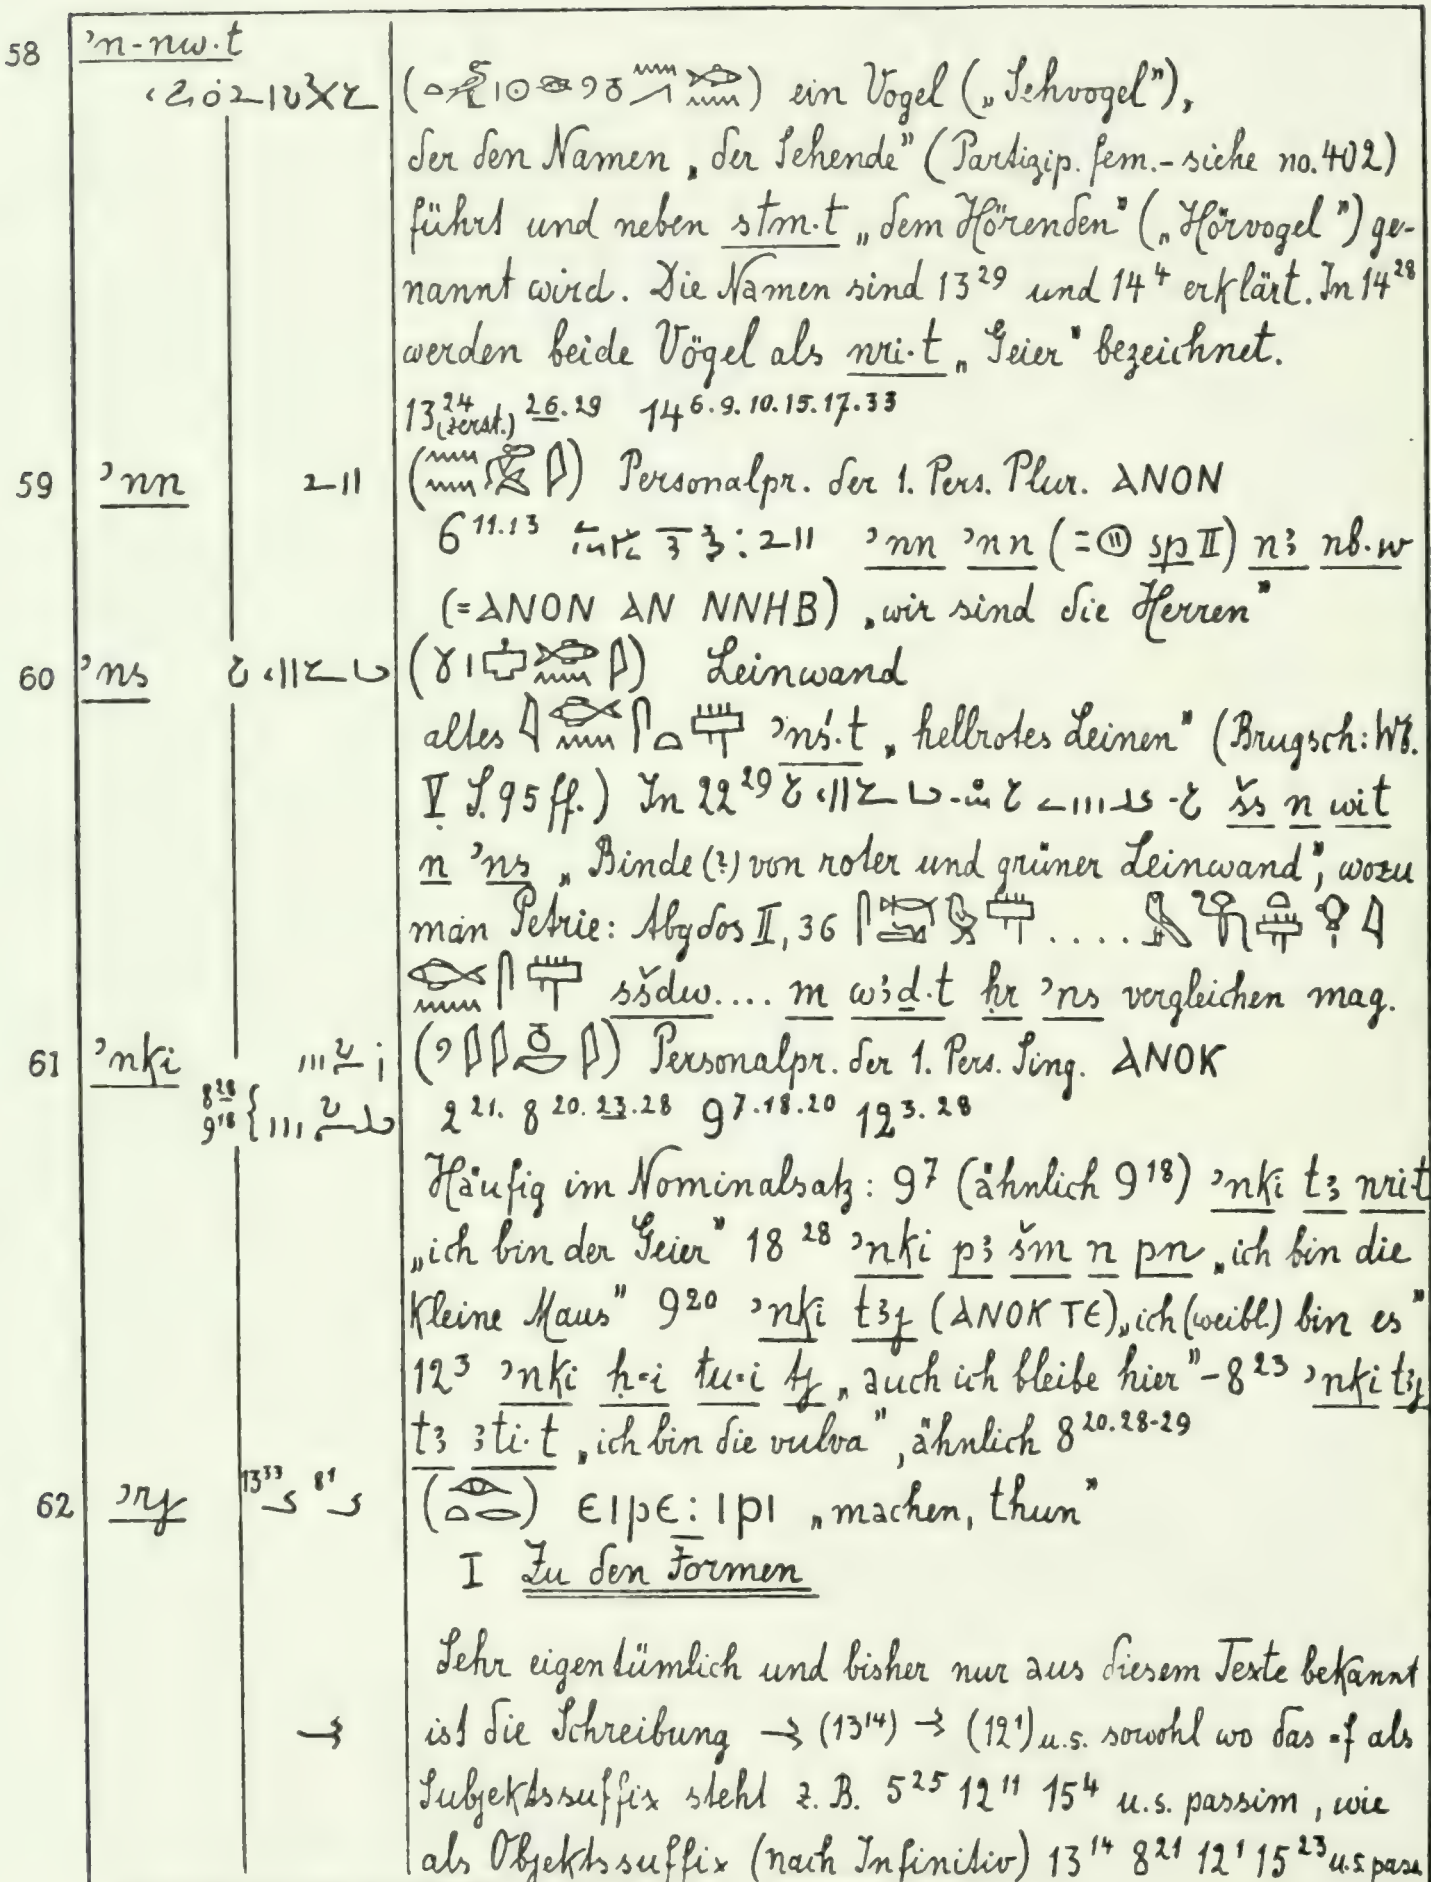 58 ʾn-nw·t
ein Vogel („Sehvogel"),
der den Namen „der Sehende" (Partizip. fem.- siehe no. 402)
führt und neben stm·t „dem Hörenden" („Hörvogel") ge-
nannt wird. Die Namen sind 13²⁹ und 14⁴ erklärt. In 14²⁸
werden beide Vögel als nri·t „Geier" bezeichnet.
13²⁴ (zerst.) ²⁶·²⁹ 14⁶·⁹·¹⁰·¹⁵·¹⁷·³³
59 ʾnn Personalpr. der 1. Pers. Plur. ⲀⲚⲞⲚ
6¹¹·¹³ ʾnn ʾnn (= sp II) nꜣ nb·w
(=ⲀⲚⲞⲚ ⲀⲚ ⲚⲚⲎⲂ) „wir sind die Herren"
60 ʾns Leinwand
altes ʾnś·t „hellrotes Leinen" (Brugsch: Wb.
V S. 95 ff.) In 22²⁹ šs n wit
n ʾns „Binde (?) von roter und grüner Leinwand", wozu
man Petrie: Abydos II, 36 ....
sšdw.... m wꜣḏ·t ḥr ʾns vergleichen mag.
61 ʾnki Personalpr. der 1. Pers. Sing. ⲀⲚⲞⲔ
8²⁸ 9¹⁸ { 2²¹. 8²⁰·²³·²⁸ 9⁷·¹⁸·²⁰ 12³·²⁸
Häufig im Nominalsatz: 9⁷ (ähnlich 9¹⁸) ʾnki tꜣ nri·t
„ich bin der Geier" 18²⁸ ʾnki pꜣ šm n pn „ich bin die
kleine Maus" 9²⁰ ʾnki tꜣj (ⲀⲚⲞⲔ ⲦⲈ) „ich (weibl.) bin es"
12³ ʾnki ḥ=i tu=i tj „auch ich bleibe hier" - 8²³ ʾnki tꜣj
tꜣ ꜣti·t „ich bin die vulva", ähnlich 8²⁰·²⁸⁻²⁹
62 ʾrj 13³³ 8¹ ⲈⲒⲢⲈ: ⲒⲢⲒ „machen, thun"
I Zu den Formen
Sehr eigentümlich und bisher nur aus diesem Texte bekannt
ist die Schreibung (13¹⁴) (12¹) u.s. sowohl wo das =f als
Subjektssuffix steht z. B. 5²⁵ 12¹¹ 15⁴ u.s. passim, wie
als Objektssuffix (nach Infinitiv) 13¹⁴ 8²¹ 12¹ 15²³ u.s. pass